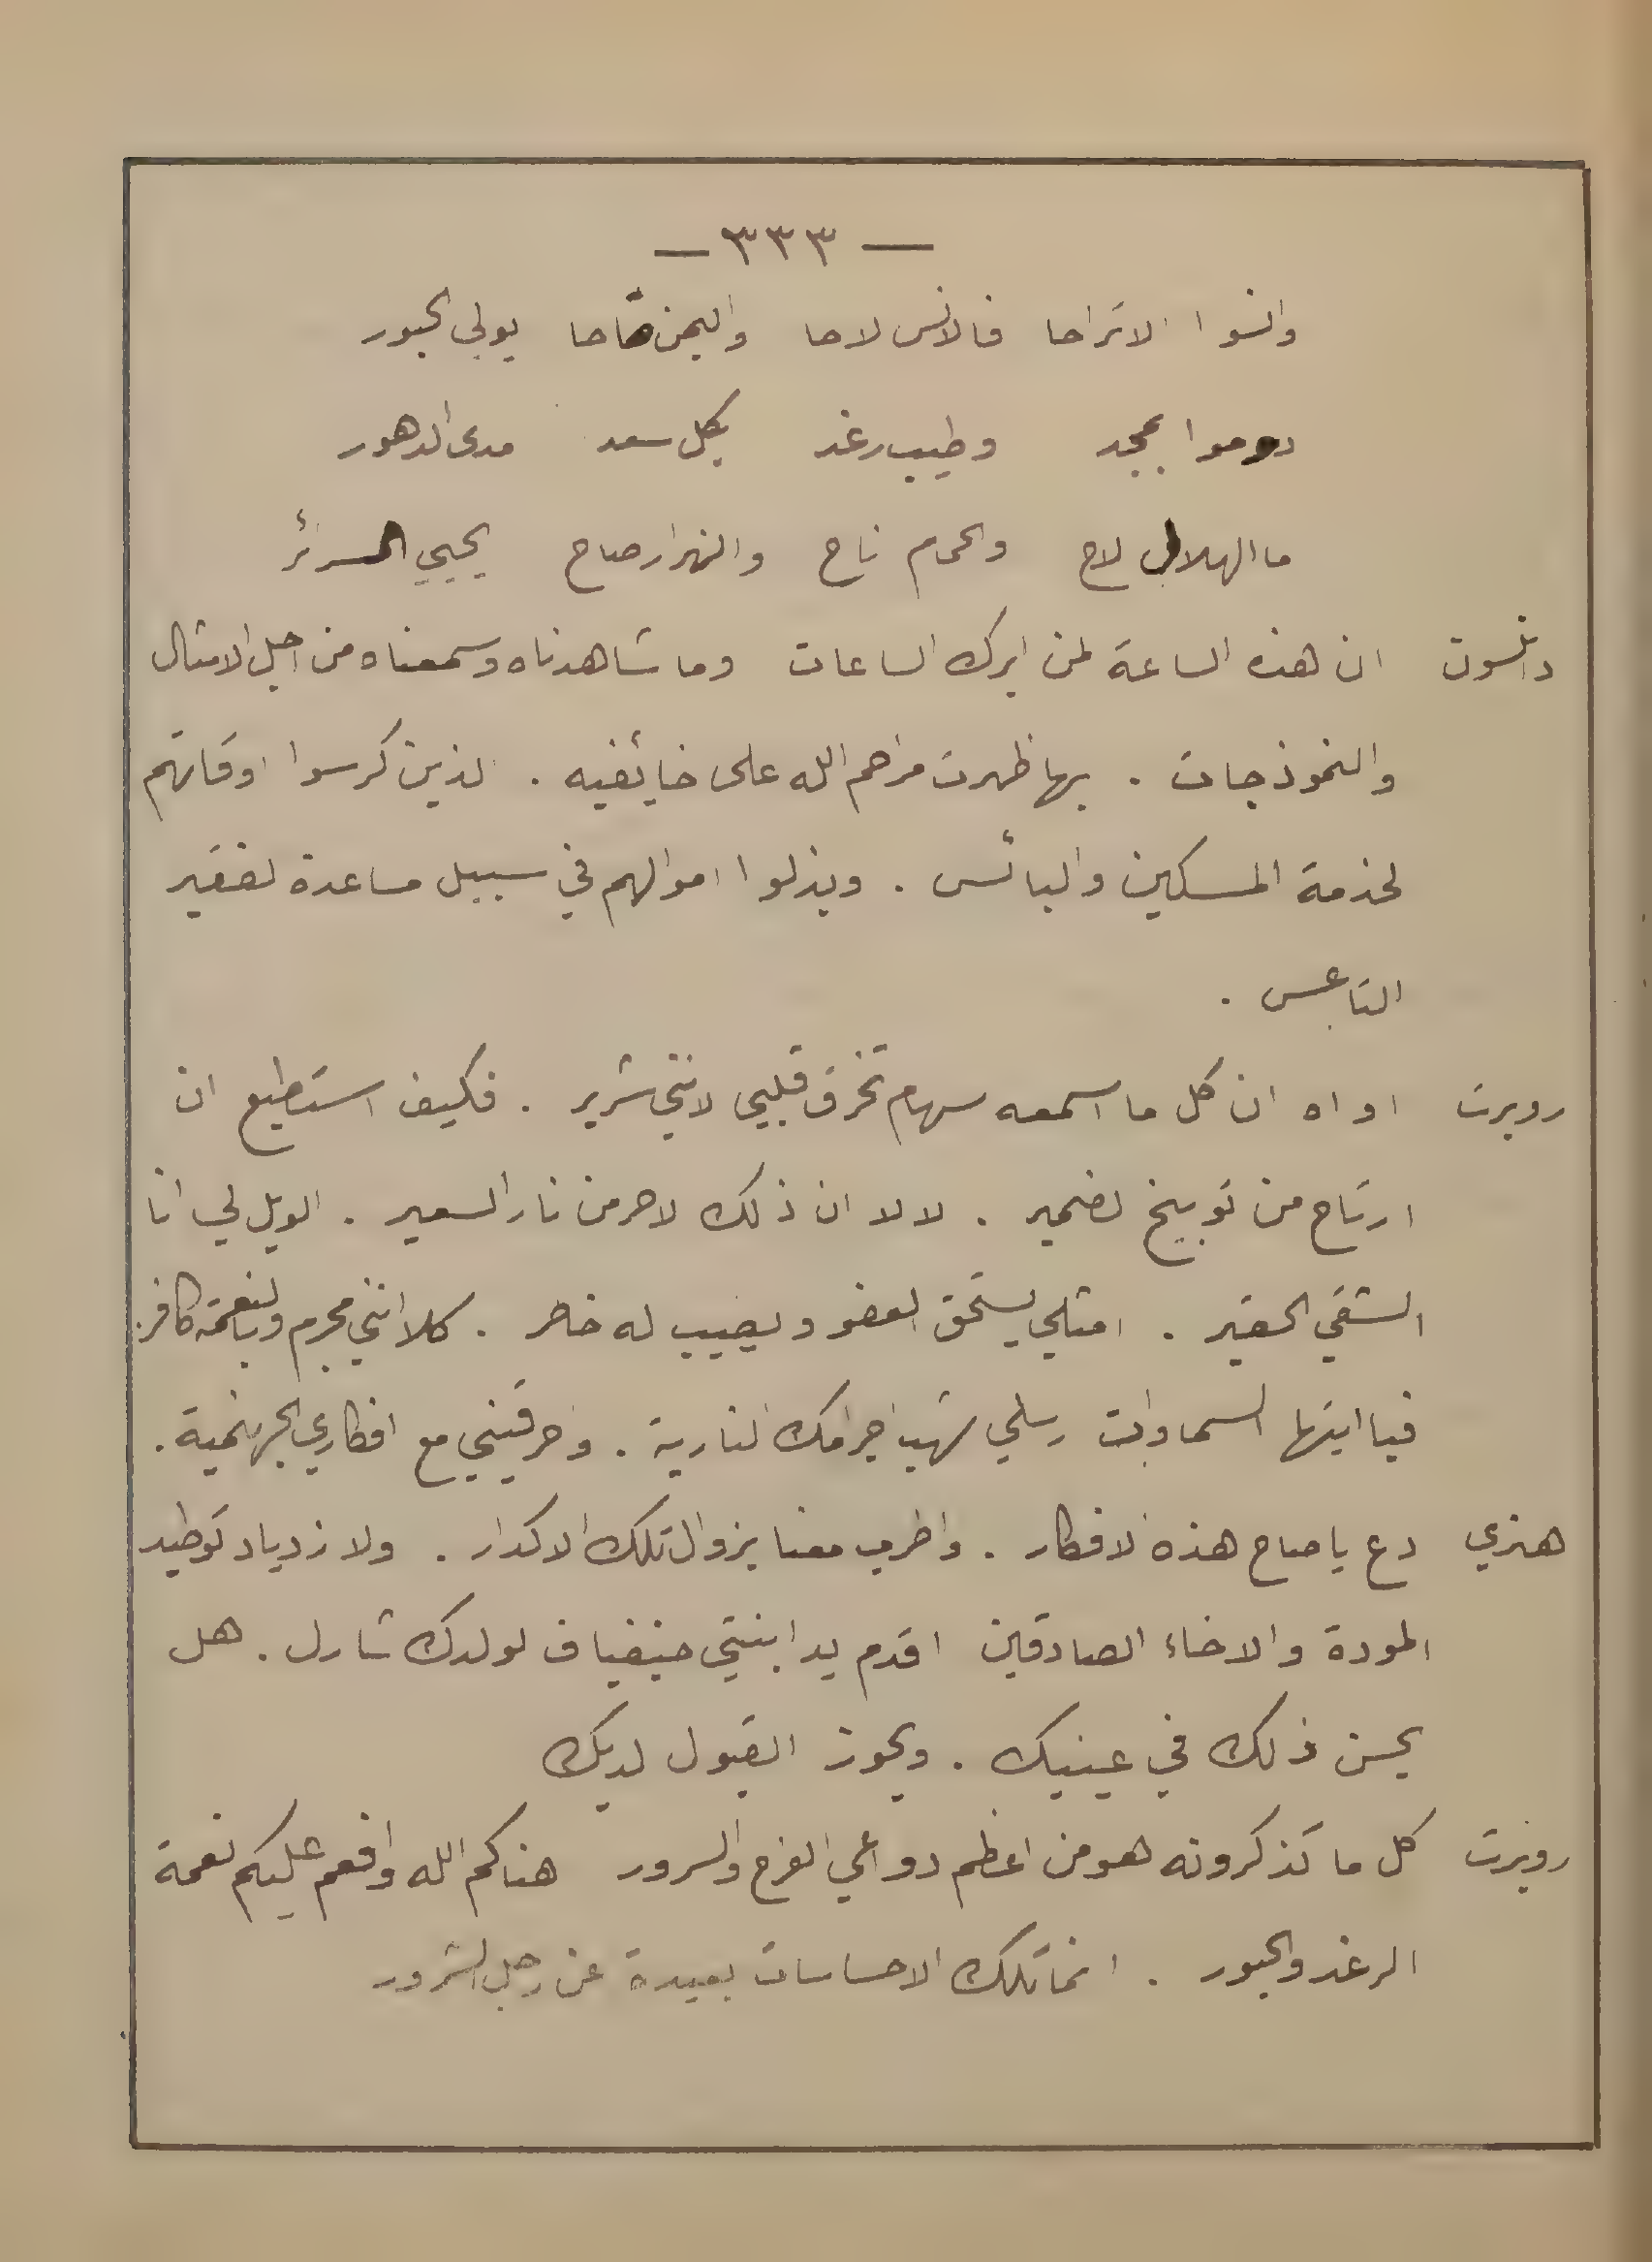 — ٣٣٣ —
وانسوا الاتراحا فالانس لاحا واليمن فاحا يولي الحبور
دوموا بمجد وطيب رغد بكل سعد مدى الدهور
ما الهلال لاح والحمام ناح والهزار صاح يحيي السرائر
دانسون ان هذه الساعة لمن ابرك الساعات وما شاهدناه وسمعناه من اجل الامثال
والنموذجات . بها ظهرت مراحم الله على خايفيه . الذين كرسوا اوقاتهم
لخدمة المسكين والبائس . وبذلوا اموالهم في سبيل مساعدة الفقير
التاعس .
روبرت اواه ان كل ما اسمعه سهام تخرق قلبي لانني شرير . فكيف استطيع ان
ارتاح من توبيخ الضمير . لا لا ان ذلك لاحر من نار السعير . الويل لي انا
الشقي الحقير . امثلي يستحق العفو ويطيب له خاطر . كلا انني مجرم وبالنعمة كافر .
فيا ايتها السماوات ارسلي شهب اجرامك النارية . واحرقيني مع افكاري الجهنمية .
هنري دع يا صاح هذه الافكار . واطرب معنا بزوال تلك الاكدار . ولازدياد توطيد
المودة والاخاء الصادقين اقدم يد ابنتي جنفياف لولدك شارل . هل
يحسن ذلك في عينيك . ويحوز القبول لديك
روبرت كل ما تذكرونه هو من اعظم دواعي الفرح والسرور هناكم الله وافعم عليكم نعمة
الرغد والحبور . انما تلك الاحساسات بعيدة عن رجل الشرور